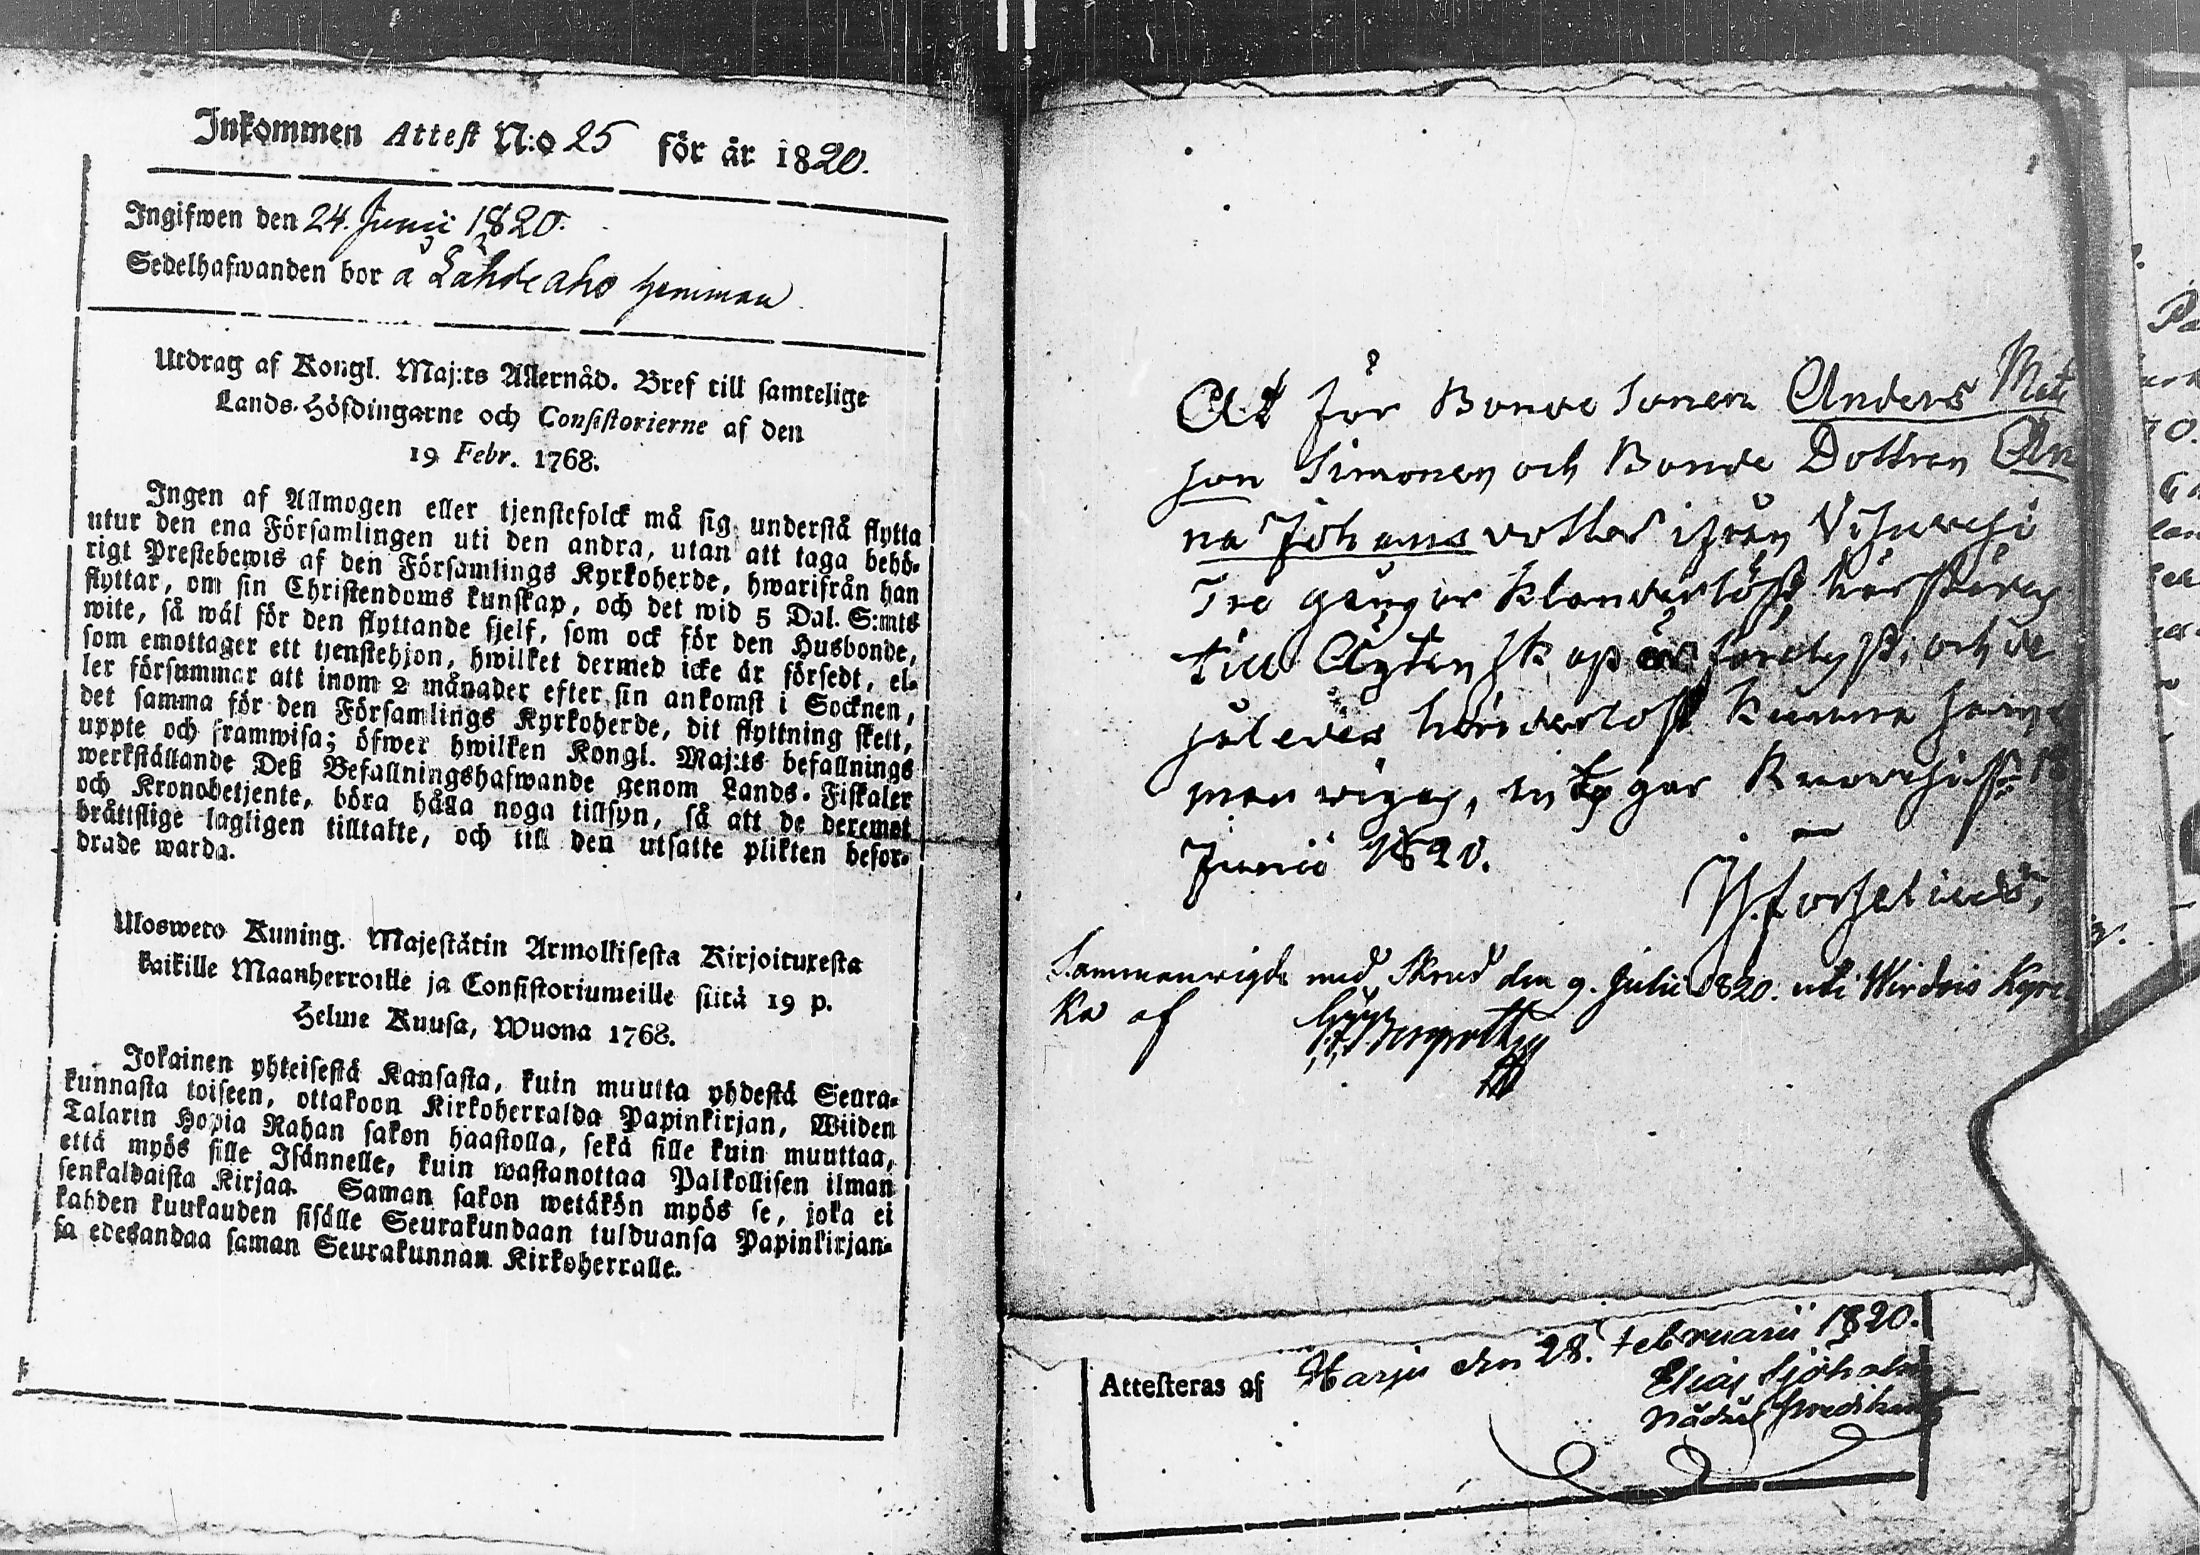 Inkommen Attest N:o 25 för år 1820.
Ingifwen den 24. Junii 1820.
Sedelhafwanden bor å Lähdeaho hemman
Utdrag af Kongl. Maj:ts Allernåd. Bref till samtelige
Lands-Höfdingarne och Consistorierne af den
19 Febr. 1768.
Ingen af Allmogen eller tjenstefolck må sig understå flytta
utur den ena Församlingen uti den andra, utan att taga behö-
rigt Prestebewis af den Församlings Kyrkoherde, hwarifrån han
flyttar, om sin Christendoms kunskap, och det wid 5 Dal. S:mts
wite, så wäl för den flyttande sjelf, som ock för den Husbonde,
som emottager ett tjenstehjon, hwilket dermed icke är försedt, el-
ler försummar att inom 2 månader efter sin ankomst i Socknen,
det samma för den Församlings Kyrkoherde, dit flyttning skett,
uppte och framwisa; öfwer hwilken Kongl. Maj:ts befallnings
werkställande Deß Befallningshafwande genom Lands-Fiskaler
och Kronobetjente, böra hålla noga tillsyn, så att de deremot
bråttslige lagligen tilltalte, och till den utsatte plikten befor-
drade warda.
Uloswето Kuning. Majestätin Armollisesta Kirjoituxesta
kaikille Maanherroille ja Consistoriumeille siitä 19 p.
Helme Kuusa, Wuona 1768.
Jokainen yhteisestä Kansasta, kuin muutta yhdestä Seura-
kunnasta toiseen, ottakoon Kirkoherralda Papinkirjan, Wiiden
Talarin Hopia Rahan sakon haastolla, sekä sille kuin muuttaa,
että myös sille Isännelle, kuin wastanottaa Palkollisen ilman
senkaldaista Kirjaa. Saman sakon wetäkön myös se, joka ei
kahden kuukauden sisälle Seurakundaan tulduansa Papinkirjan-
sa edesandaa saman Seurakunnan Kirkoherralle.
At för Bonde Sonen Anders Mat
son Simonen och Bonde Dottren An
na Johans dotter ifrån
Tre gångor klanderlöst
till Ägtenskap och
således hinderlöst kunna samm
man wigas, intygar
Junii 1820.
Sammanvigde med Skrud den 9. Julii 1820. uti Wirdois Kyrc
ka af
Attesteras af Harju den 28. Februarii 1820.
Elias Sjöholm
Nådårs Predikant